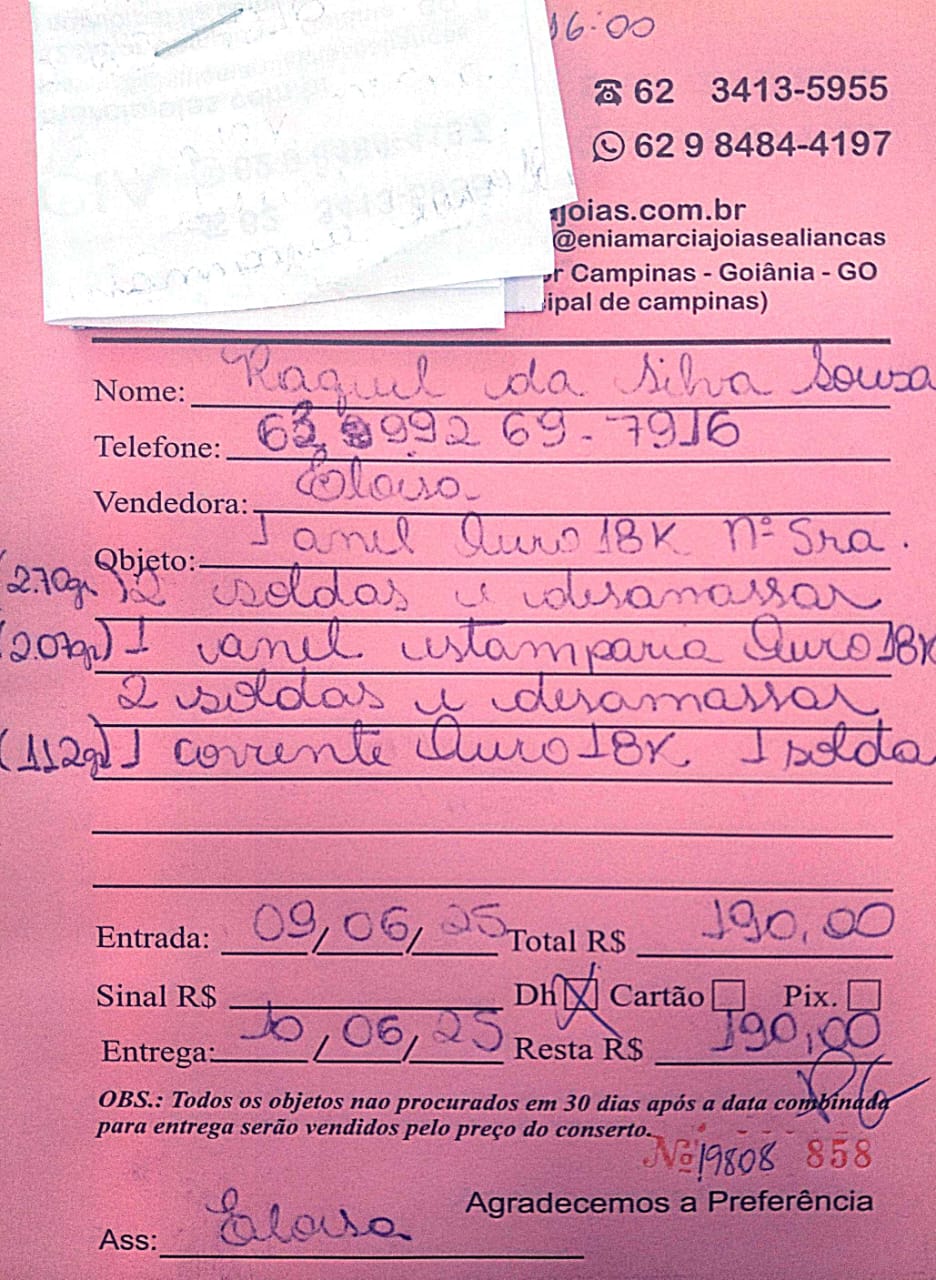 16:00
62 3413-5955
62 9 8484-4197
joias.com.br
@eniamarciajoiasealiancas
Campinas - Goiânia - GO
ipal de campinas)
Nome: Raquel da Silva Sousa
Telefone: 63 9992 69-7916
Vendedora: Eloisa
Objeto: 1 anel Ouro 18K Nª Sra.
(2.70gr) 2 soldas e desamassar
(2.07gr) 1 anel estamparia Ouro 18K
2 soldas e desamassar
(1.12gr) 1 corrente Ouro 18K 1 solda
Entrada: 09/06/25 Total R$ 190,00
Sinal R$ Dh Cartão Pix.
Entrega: 10/06/25 Resta R$ 190,00
OBS.: Todos os objetos nao procurados em 30 dias após a data combinada
para entrega serão vendidos pelo preço do conserto.
Nº 19808 858
Agradecemos a Preferência
Ass: Eloisa